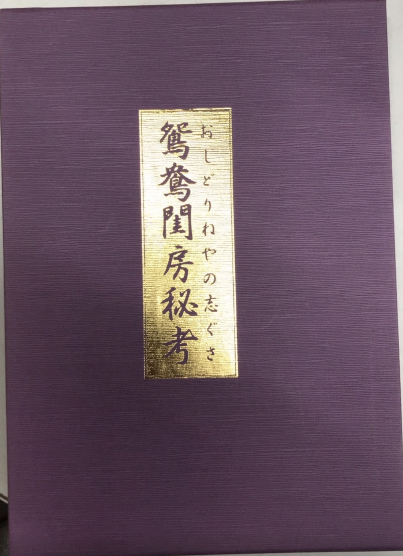 おしどりねやの志ぐさ
鴛鴦閨房秘考